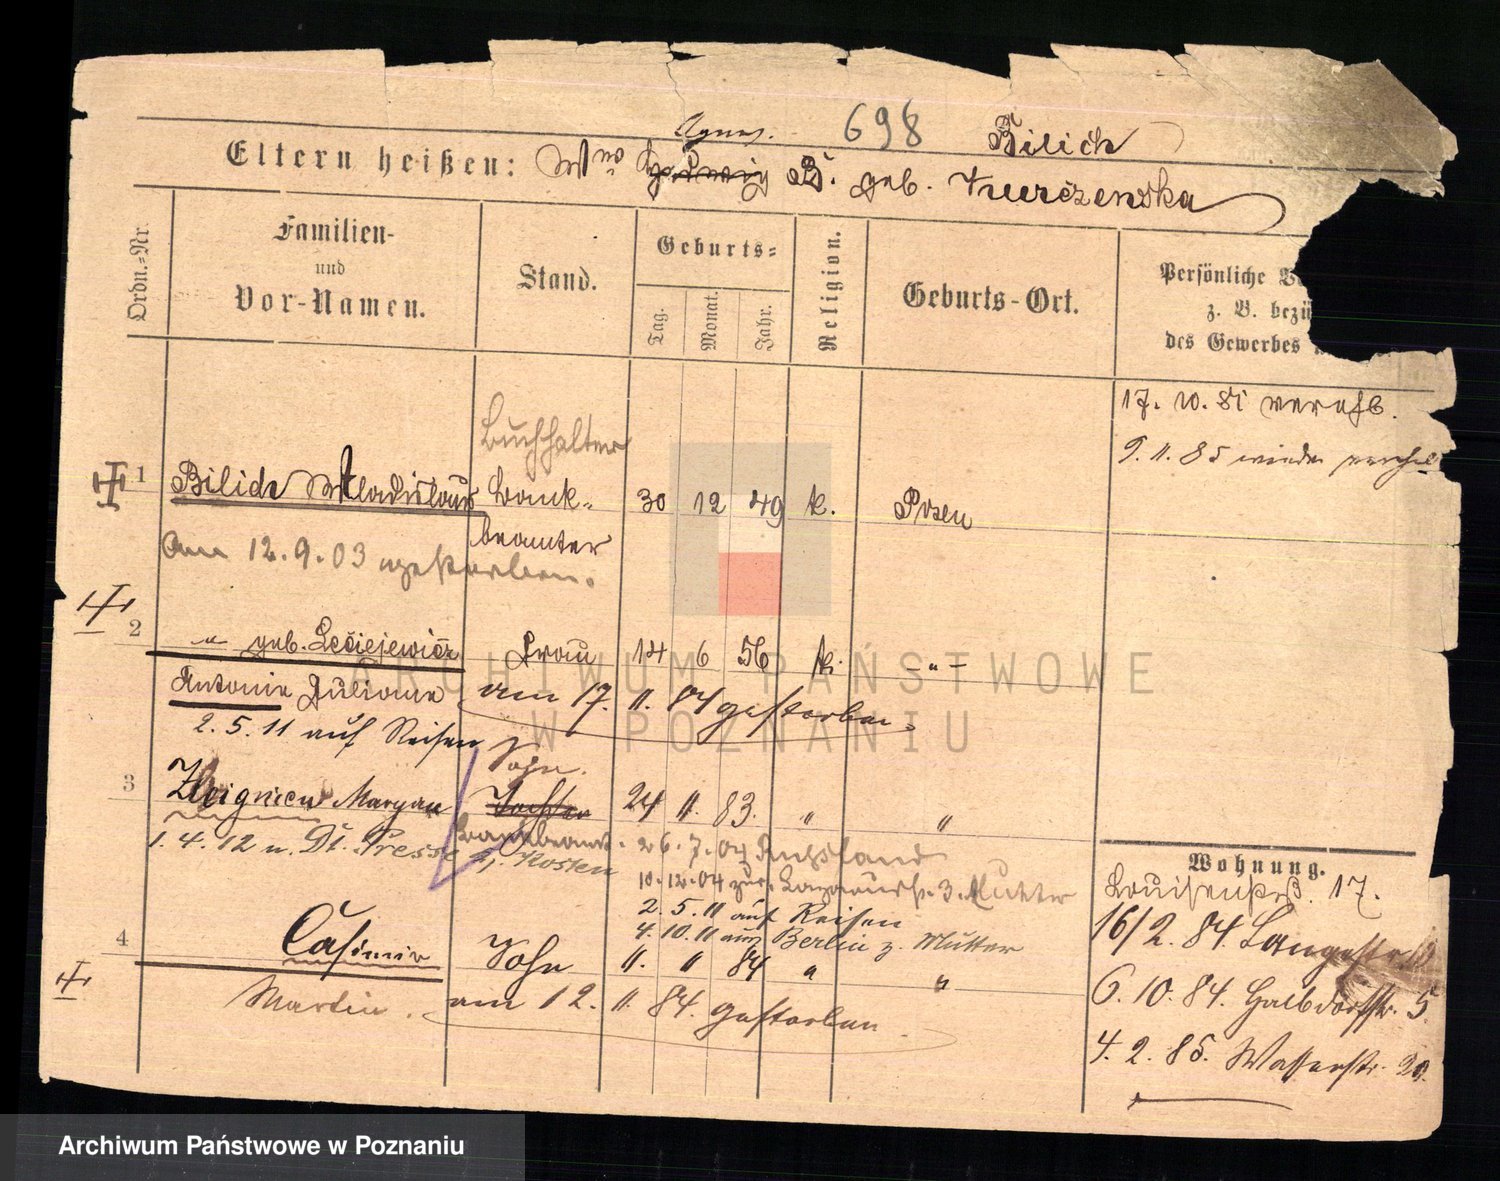 698
Agnes. Bilick
Eltern heißen: Wwe Hedwig B. geb. Turczenska
Ordn.-Nr.
Familien-
und
Vor-Namen.
Stand.
Geburts-
Tag.
Monat.
Jahr.
Religion.
Geburts-Ort.
Persönliche
z. B.
des Gewerbes
17. 10. 81 verahb.
9. 11. 85 wieder
Buchhalter
1 Bilick Wladislaus Bank- 30 12 49 k. Posen
beamter
Am 12. 9. 03 gestorben.
2 " geb. Frau 14 6 56 k. - " -
Antonie Juliana am 17. 11. 84 gestorben
2. 5. 11 auf Reisen
Sohn.
3 Zbigniew Maryan Tochter 24 11. 83. " "
Bankbeamt. 26. 7. 04 Russland
1. 4. 12 n. Dt. Presse Kr. Kosten
10. 12. 04 zur. 3. Mutter
2. 5. 11 auf Reisen
4. 10. 11 aus Berlin z. Mutter
4 Casimir Sohn 11. 11 84 " "
Martin. am 12. 11. 84. gestorben
Wohnung.
Louisenstr. 17.
16/2. 84. Langestr.
6. 10. 84. Halbdorfstr. 5.
4. 2. 85. Wasserstr. 20.
ARCHIWUM PAŃSTWOWE
W POZNANIU
Archiwum Państwowe w Poznaniu